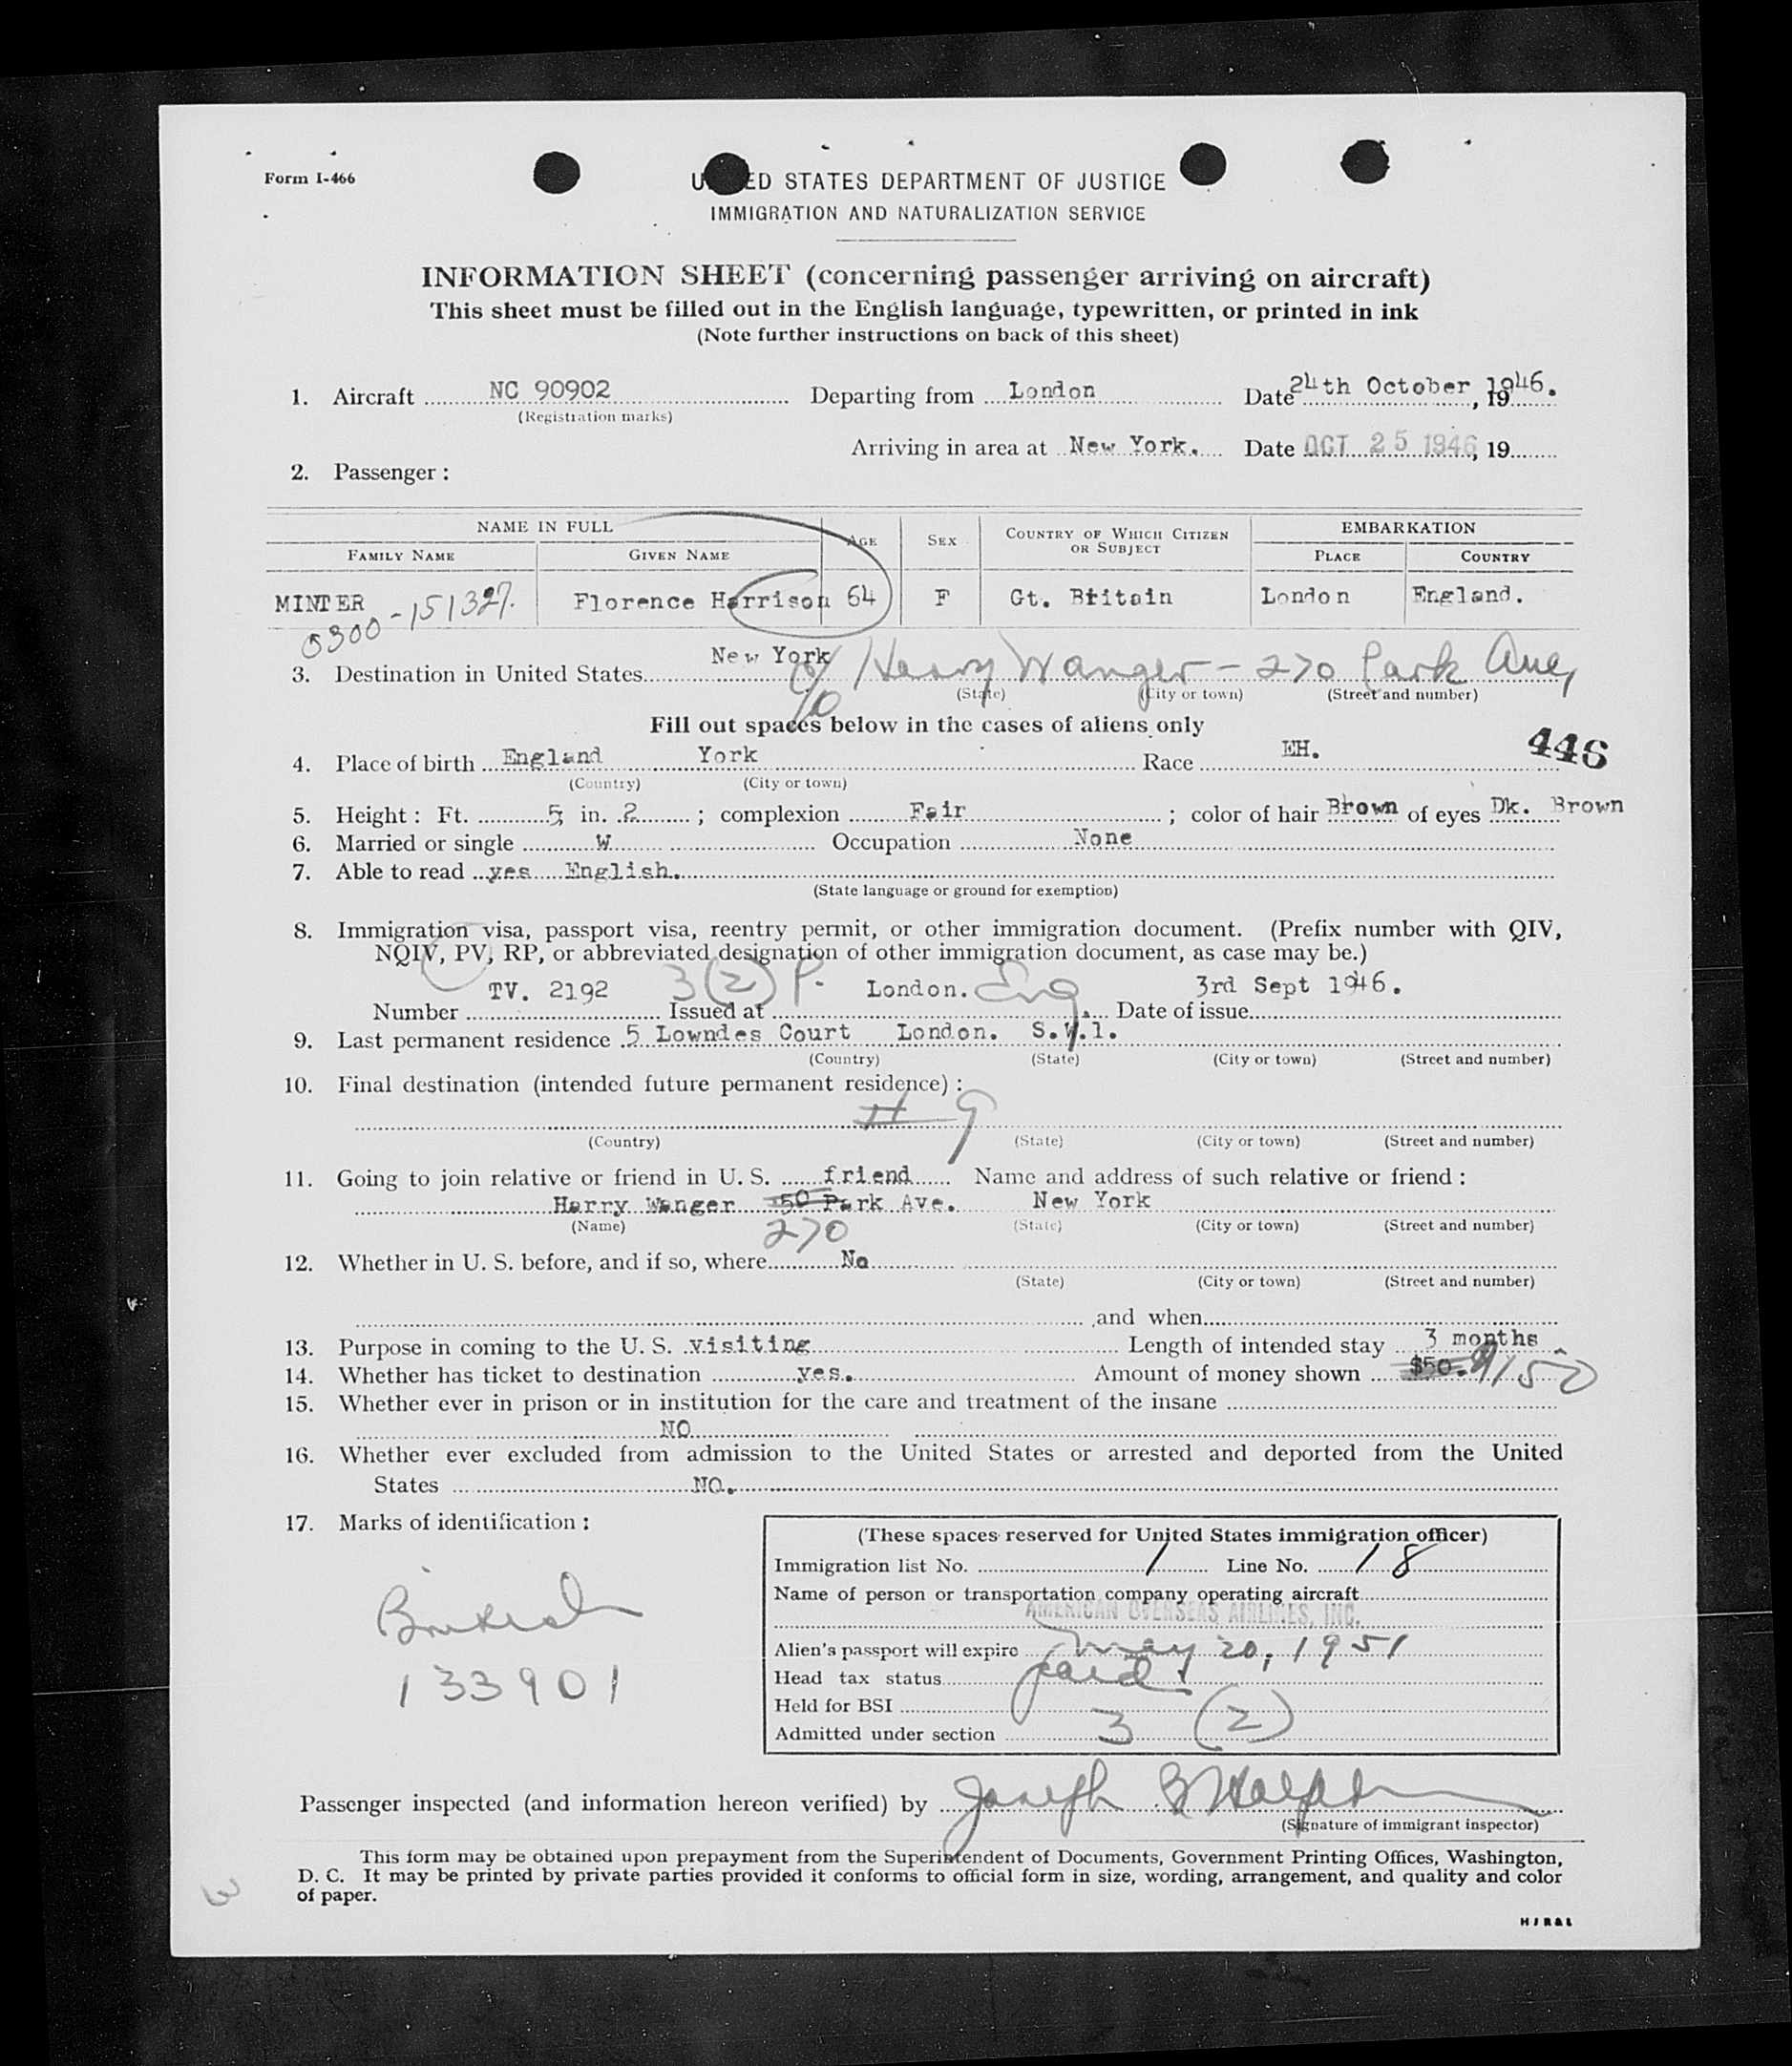 Form I-466
UNITED STATES DEPARTMENT OF JUSTICE
IMMIGRATION AND NATURALIZATION SERVICE
INFORMATION SHEET (concerning passenger arriving on aircraft)
This sheet must be filled out in the English language, typewritten, or printed in ink
(Note further instructions on back of this sheet)
1. Aircraft NC 90902 Departing from London Date 24th October 1946. , 19
(Registration marks)
Arriving in area at New York. Date OCT 25 1946, 19
2. Passenger:
NAME IN FULL AGE SEX COUNTRY OF WHICH CITIZEN OR SUBJECT EMBARKATION
FAMILY NAME GIVEN NAME PLACE COUNTRY
MINTER Florence Harrison 64 F Gt. Btitain London England.
0300-151327.
3. Destination in United States New York c/o Harry Wanger - 270 Park Ave,
(State) (City or town) (Street and number)
Fill out spaces below in the cases of aliens only
446
4. Place of birth England York Race EH.
(Country) (City or town)
5. Height: Ft. 5 in. 2 ; complexion Fair ; color of hair Brown of eyes Dk. Brown
6. Married or single W Occupation None
7. Able to read yes English.
(State language or ground for exemption)
8. Immigration visa, passport visa, reentry permit, or other immigration document. (Prefix number with QIV,
NQIV, PV, RP, or abbreviated designation of other immigration document, as case may be.)
Number TV. 2192 3(2) P. Issued at London. Eng. Date of issue 3rd Sept 1946.
9. Last permanent residence 5 Lowndes Court London. S.W.1.
(Country) (State) (City or town) (Street and number)
10. Final destination (intended future permanent residence):
(Country) (State) (City or town) (Street and number)
11. Going to join relative or friend in U. S. friend Name and address of such relative or friend:
Harry Wanger 50 Park Ave. New York
(Name) (State) (City or town) (Street and number)
270
12. Whether in U. S. before, and if so, where No
(State) (City or town) (Street and number)
and when
13. Purpose in coming to the U. S. visiting Length of intended stay 3 months
14. Whether has ticket to destination yes. Amount of money shown $50. $150
15. Whether ever in prison or in institution for the care and treatment of the insane
NO
16. Whether ever excluded from admission to the United States or arrested and deported from the United
States NO.
17. Marks of identification:
133901
(These spaces reserved for United States immigration officer)
Immigration list No. 1 Line No. 18
Name of person or transportation company operating aircraft
AMERICAN OVERSEAS AIRLINES, INC.
Alien's passport will expire May 20, 1951
Head tax status paid
Held for BSI
Admitted under section 3 (2)
Passenger inspected (and information hereon verified) by Joseph
(Signature of immigrant inspector)
This form may be obtained upon prepayment from the Superintendent of Documents, Government Printing Offices, Washington,
D. C. It may be printed by private parties provided it conforms to official form in size, wording, arrangement, and quality and color
of paper.